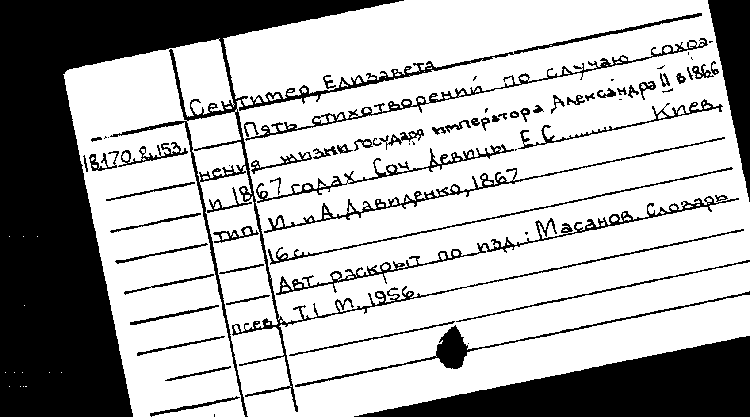 Сентимер, Елизавета
18.170.2.153.
Пять стихотворений по случаю сохра-
нения жизни государя императора Александра II в 1866
и 1867 годах. Соч. девицы Е.С. ......... Киев,
тип. И. и А. Давиденко, 1867
16 с.
Авт. раскрыт по изд.: Масанов. Словарь
псевд. Т.1 М., 1956.